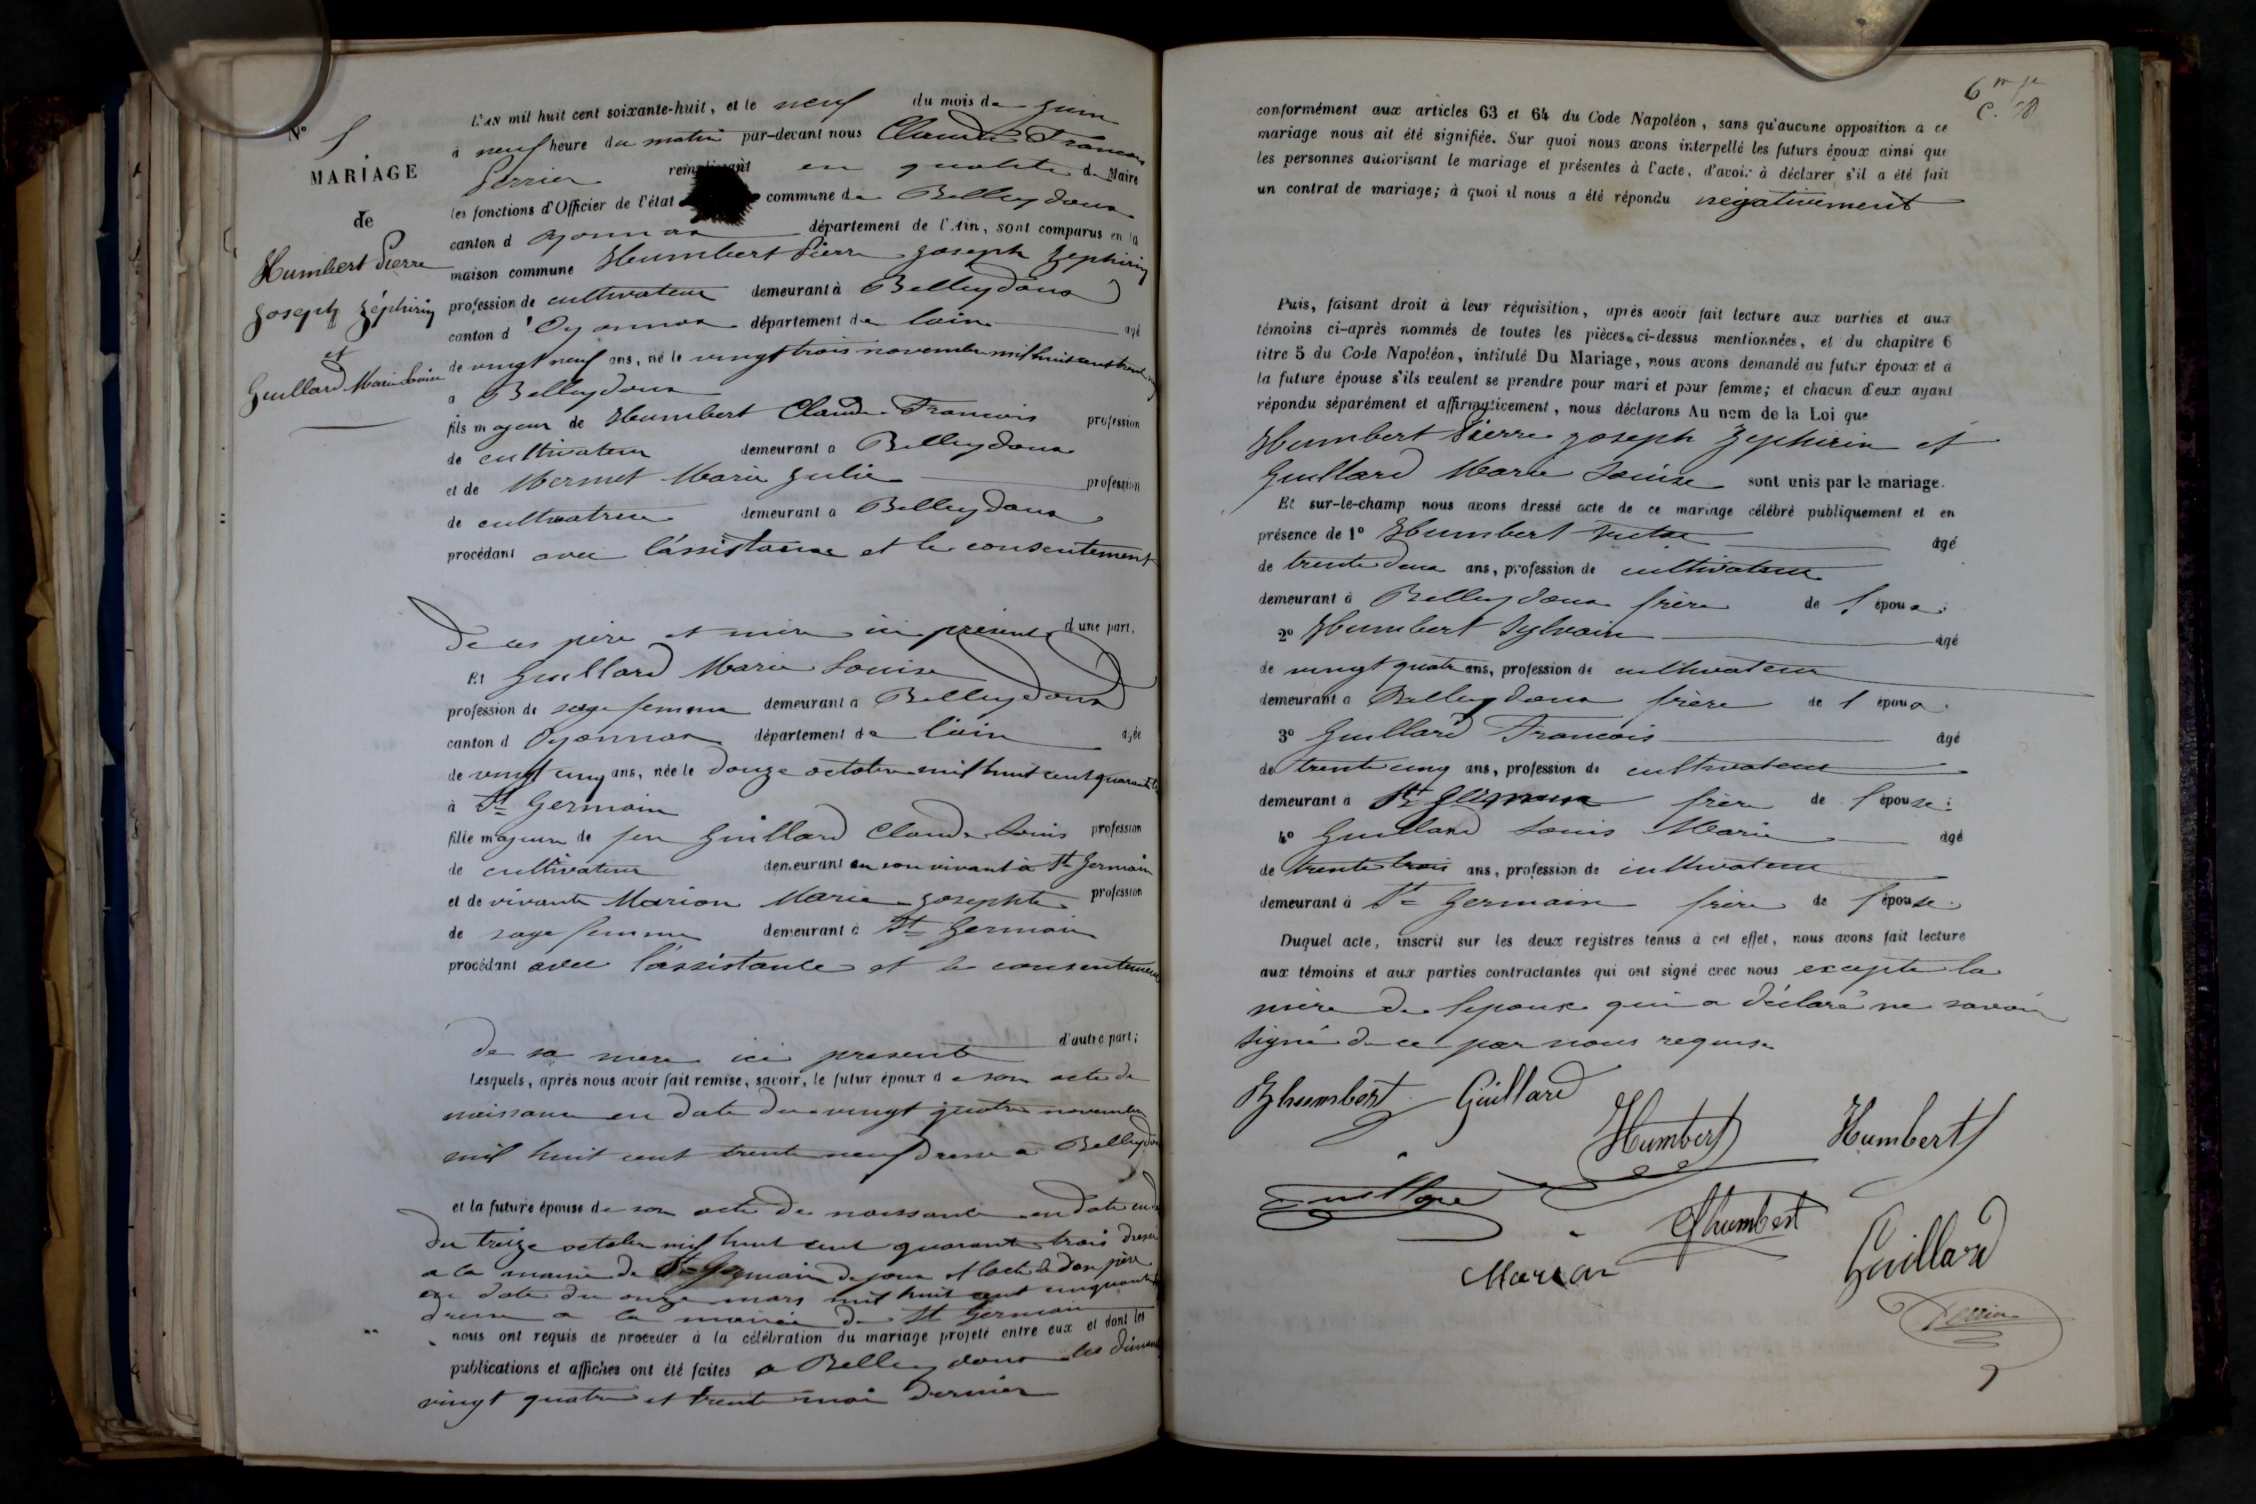 N° 5
MARIAGE
de
Humbert Pierre
Joseph Zéphirin
et
Guillard Marie Louise
L'an mil huit cent soixante-huit, et le neuf du mois de Juin
à neuf heure du matin par-devant nous Claude François
Perrier remplissant en qualité de Maire
les fonctions d'Officier de l'état commune de Belleydoux
canton d Oyonnax département de l'Ain, sont comparus en la
maison commune Humbert Pierre Joseph Zephirin
profession de cultivateur demeurant à Belleydoux
canton d'Oyonnax département de lain âgé
de vingt neuf ans, né le vingt trois novembre mil huit cent trente
à Belleydoux
fils majeur de Humbert Claude François profession
de cultivateur demeurant a Belleydoux
et de Mermet Marie Julie profession
de cultivatrice demeurant a Belleydoux
procédant avec l'assistance et le consentement
de ces père et mère ici présents d'une part.
Et Guillard Marie Louise
profession de sage femme demeurant a Belleydoux
canton d Oyonnax département de l'ain âgée
de vingt cinq ans, née le douze octobre mil huit cent quarante
à St Germain
fille majeure de feu Guillard Claude Louis profession
de cultivateur demeurant en son vivant à St Germain
et de vivante Marion Marie Josephte profession
de sage femme demeurant à St Germain
procédant avec l'assistance et le consentement
de sa mère ici presente d'autre part;
Lesquels, après nous avoir fait remise, savoir, le futur époux de son acte de
naissance en date du vingt quatre novembre
mil huit cent trente neuf dressé a Belleydoux
et la future épouse de son acte de naissance en date
du treize octobre mil huit cent quarante trois dressé
a la mairie de St Germain de joux et lacte de son père
en date du onze mars mil huit cent cinquante
dressé a la mairie de St Germain
nous ont requis de procéder à la célébration du mariage projeté entre eux et dont les
publications et affiches ont été faites a Belleydoux les
vingt quatre et trente mai dernier
conformément aux articles 63 et 64 du Code Napoléon, sans qu'aucune opposition à ce
mariage nous ait été signifiée. Sur quoi nous avons interpellé les futurs époux ainsi que
les personnes autorisant le mariage et présentes à l'acte, d'avoir à déclarer s'il a été fait
un contrat de mariage; à quoi il nous a été répondu négativement
Puis, faisant droit à leur réquisition, après avoir fait lecture aux parties et aux
témoins ci-après nommés de toutes les pièces ci-dessus mentionnées, et du chapitre 6
titre 5 du Code Napoléon, intitulé Du Mariage, nous avons demandé au futur époux et à
la future épouse s'ils veulent se prendre pour mari et pour femme; et chacun d'eux ayant
répondu séparément et affirmativement, nous déclarons Au nom de la Loi que
Humbert Pierre Joseph Zephirin et
Guillard Marie Louise sont unis par le mariage.
Et sur-le-champ nous avons dressé acte de ce mariage célébré publiquement et en
présence de 1° Humbert âgé
de trente deux ans, profession de cultivateur
demeurant à Belleydoux frère de l'époux
2° Humbert Sylvain âgé
de vingt quatre ans, profession de cultivateur
demeurant a Belleydoux frère de l époux
3° Guillard François âgé
de trente cinq ans, profession de cultivateur
demeurant a St Germain frère de l'épouse;
4° Guillard Louis Marie âgé
de trente trois ans, profession de cultivateur
demeurant à St Germain frère de l'épouse.
Duquel acte, inscrit sur les deux registres tenus à cet effet, nous avons fait lecture
aux témoins et aux parties contractantes qui ont signé avec nous excepté la
mère de lepoux qui a déclaré ne savoir
signé de ce par nous requise
Humbert Guillard
Humbert Humbert
Guillard
Humbert
Marion Guillard
Perrier